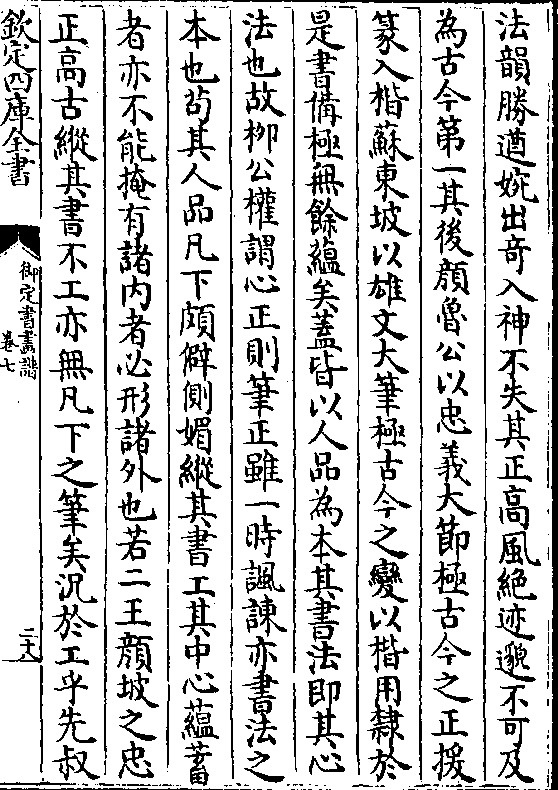 法韻勝遒婉出奇入神不失其正高風絶迹邈不可及
為古今第一其後顔魯公以忠義大節極古今之正援
篆入楷蘇東坡以雄文大筆極古今之變以楷用隸於
是書備極無餘蘊矣蓋皆以人品為本其書法即其心
法也故栁公權謂心正則筆正雖一時諷諫亦書法之
本也茍其人品凡下頗僻側媚縱其書工其中心蘊蓄
者亦不能掩有諸内者必形諸外也若二王顔坡之忠
正高古縱其書不工亦無凡下之筆矣況於工乎先叔
欽定四庫全書
御定書畫譜
卷七
二十八